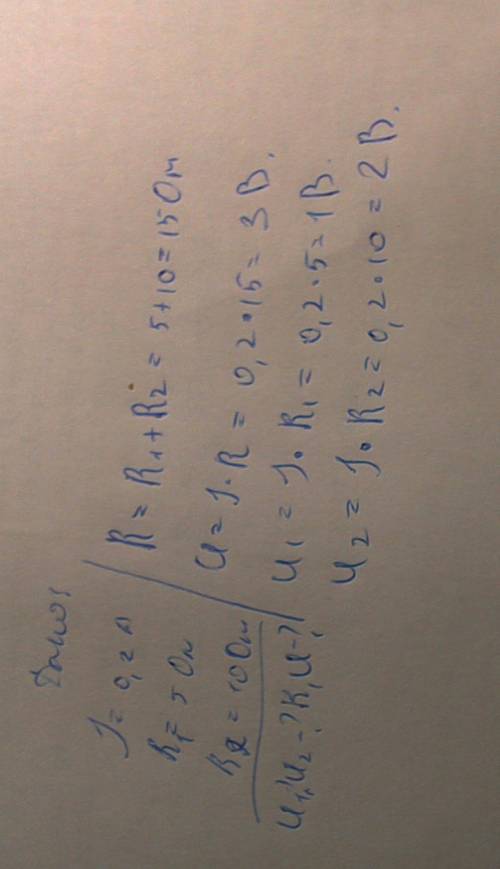 Дано:
J = 0,2 А
R1 = 5 Ом
R2 = 10 Ом
U1, U2 - ? R, U - ?
R = R1 + R2 = 5 + 10 = 15 Ом
U = J · R = 0,2 · 15 = 3 В.
U1 = J · R1 = 0,2 · 5 = 1 В.
U2 = J · R2 = 0,2 · 10 = 2 В.